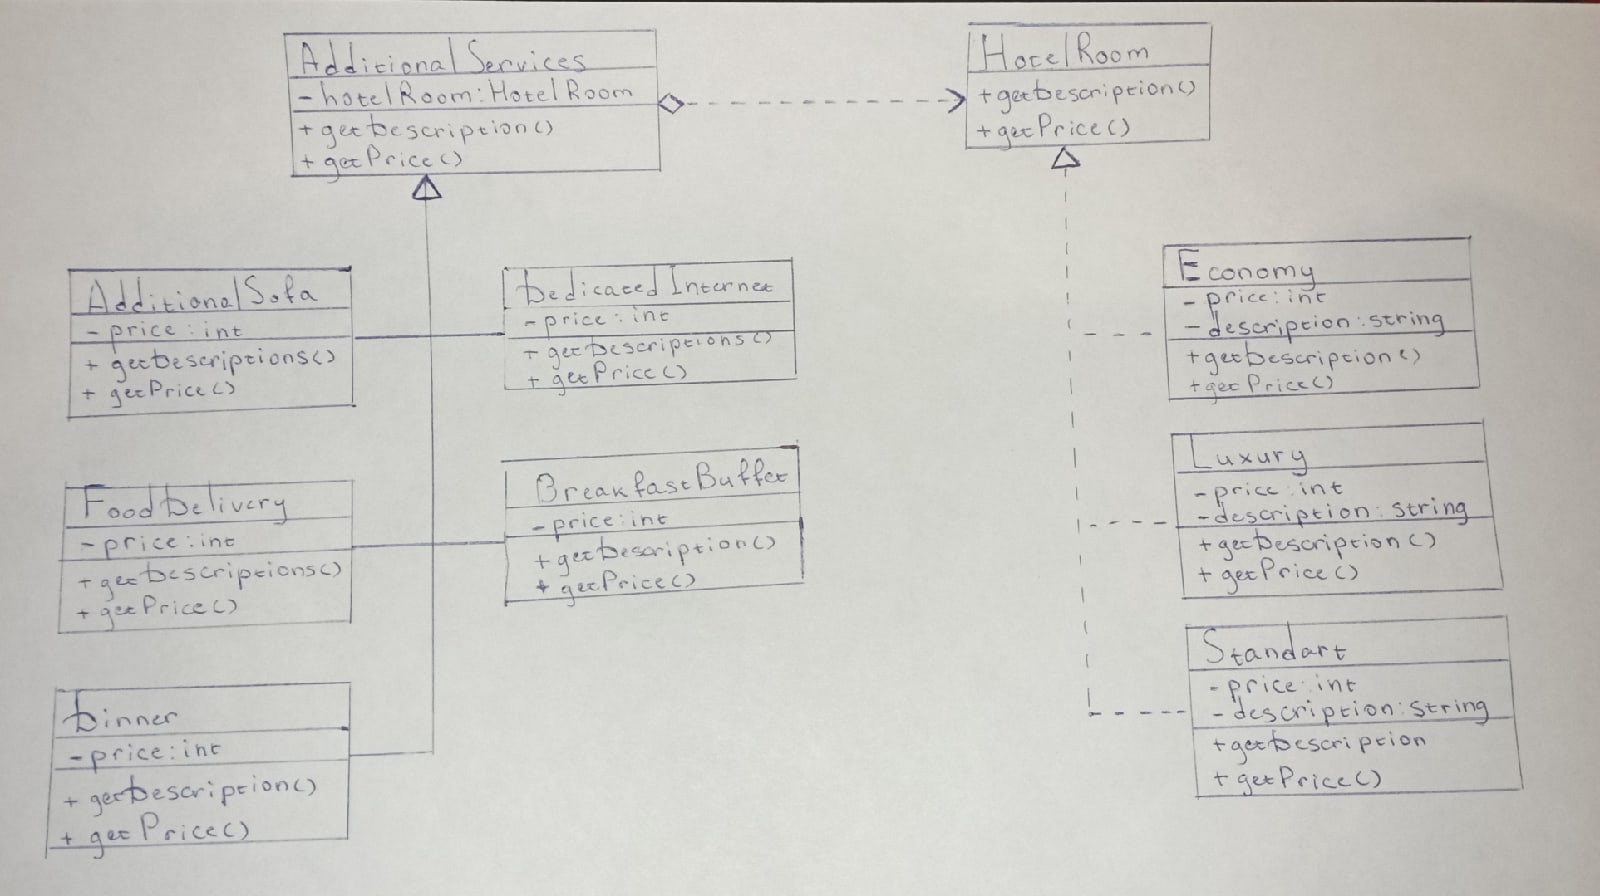 AdditionalServices
- hotelRoom: HotelRoom
+ getDescription()
+ getPrice()
HotelRoom
+ getDescription()
+ getPrice()
AdditionalSofa
- price: int
+ getDescriptions()
+ getPrice()
DedicatedInternet
- price: int
+ getDescriptions()
+ getPrice()
Economy
- price: int
- description: string
+ getDescription()
+ getPrice()
FoodDelivery
- price: int
+ getDescriptions()
+ getPrice()
BreakfastBuffet
- price: int
+ getDescription()
+ getPrice()
Luxury
- price: int
- description: string
+ getDescription()
+ getPrice()
Dinner
- price: int
+ getDescription()
+ getPrice()
Standart
- price: int
- description: string
+ getDescription
+ getPrice()